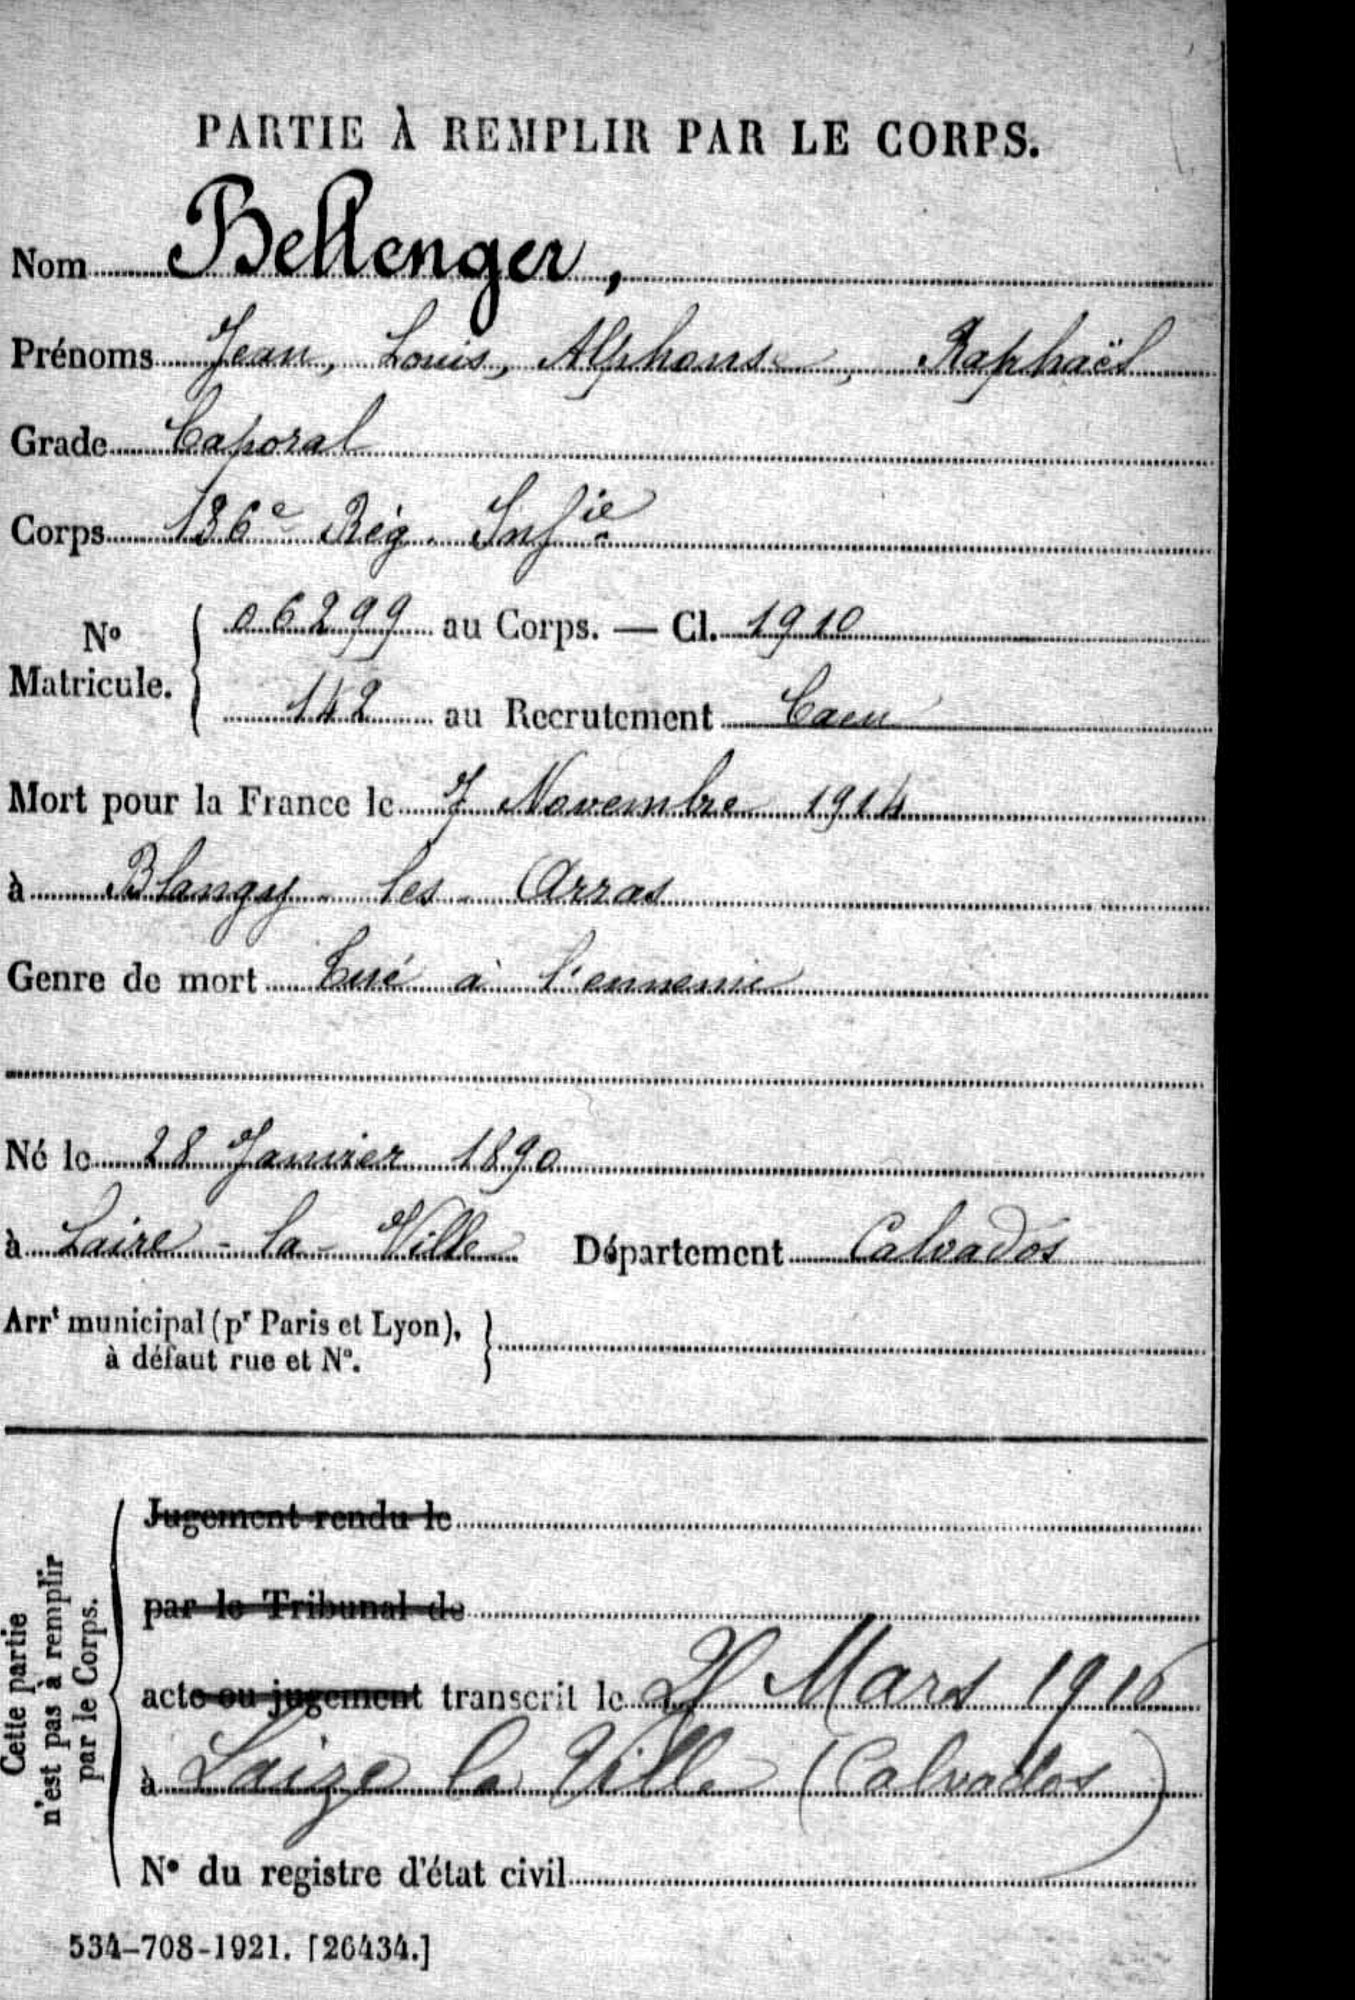 PARTIE À REMPLIR PAR LE CORPS.
Nom Bellenger,
Prénoms Jean, Louis, Alphonse, Raphaël
Grade Caporal
Corps 136e Rég. Infie
No Matricule. 06299 au Corps. — Cl. 1910
142 au Recrutement Caen
Mort pour la France le 7 Novembre 1914
à Blangy - les - Arras
Genre de mort Tué à l'ennemie
Né le 28 Janvier 1890
à Laize - la - Ville Département Calvados
Arrt municipal (pr Paris et Lyon),
à défaut rue et No.
Cette partie
n'est pas à remplir
par le Corps.
Jugement rendu le
par le Tribunal de
acte ou jugement transcrit le Mars 1916
à Laize la Ville (Calvados)
No du registre d'état civil
534-708-1921. [26434.]